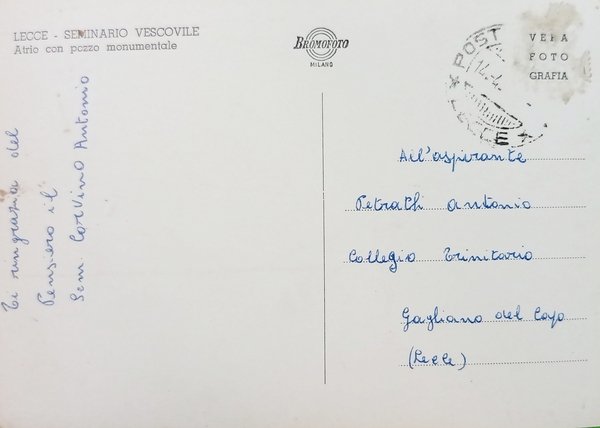 LECCE - SEMINARIO VESCOVILE
Atrio con pozzo monumentale
BROMOFOTO
MILANO
VERA
FOTO
GRAFIA
POST
14.4.
LECCE
Ti ringrazia del
Pensiero il
Sem. Corvino Antonio
All'aspirante
Petrachi Antonio
Collegio Trinitario
Gagliano del Capo
(Lecce)